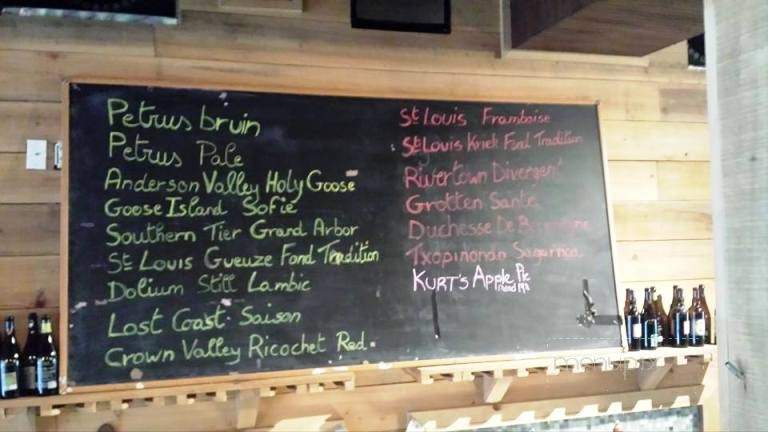 Petrus bruin
Petrus Pale
Anderson Valley Holy Goose
Goose Island Sofie
Southern Tier Grand Arbor
St Louis Gueuze Fond Tradition
Dolium Still Lambic
Lost Coast Saison
Crown Valley Ricochet Red
St Louis Framboise
St Louis Kriek Fond Tradition
Rivertown Divergent
Grotten Sante
Duchesse De
Txopinondo
KURT'S Apple Pie